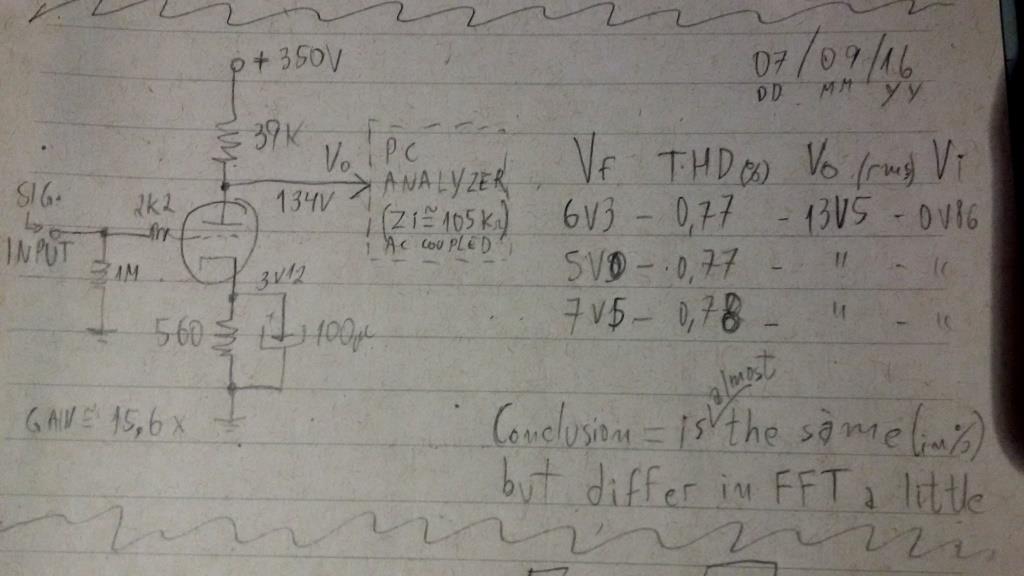 + 350V
07/09/16
DD MM YY
39K
Vo
134V
PC
ANALYZER
(Zi≅105KΩ)
AC COUPLED
SIG.
INPUT
2K2
1M
3V12
560
100µ
GAIN = 15,6 x
Vf THD(%) Vo (rms) Vi
6V3 - 0,77 - 13V5 - 0V86
5V0 - 0,77 - " - "
7V5 - 0,78 - " - "
Conclusion = is almost the same (in %)
but differ in FFT a little